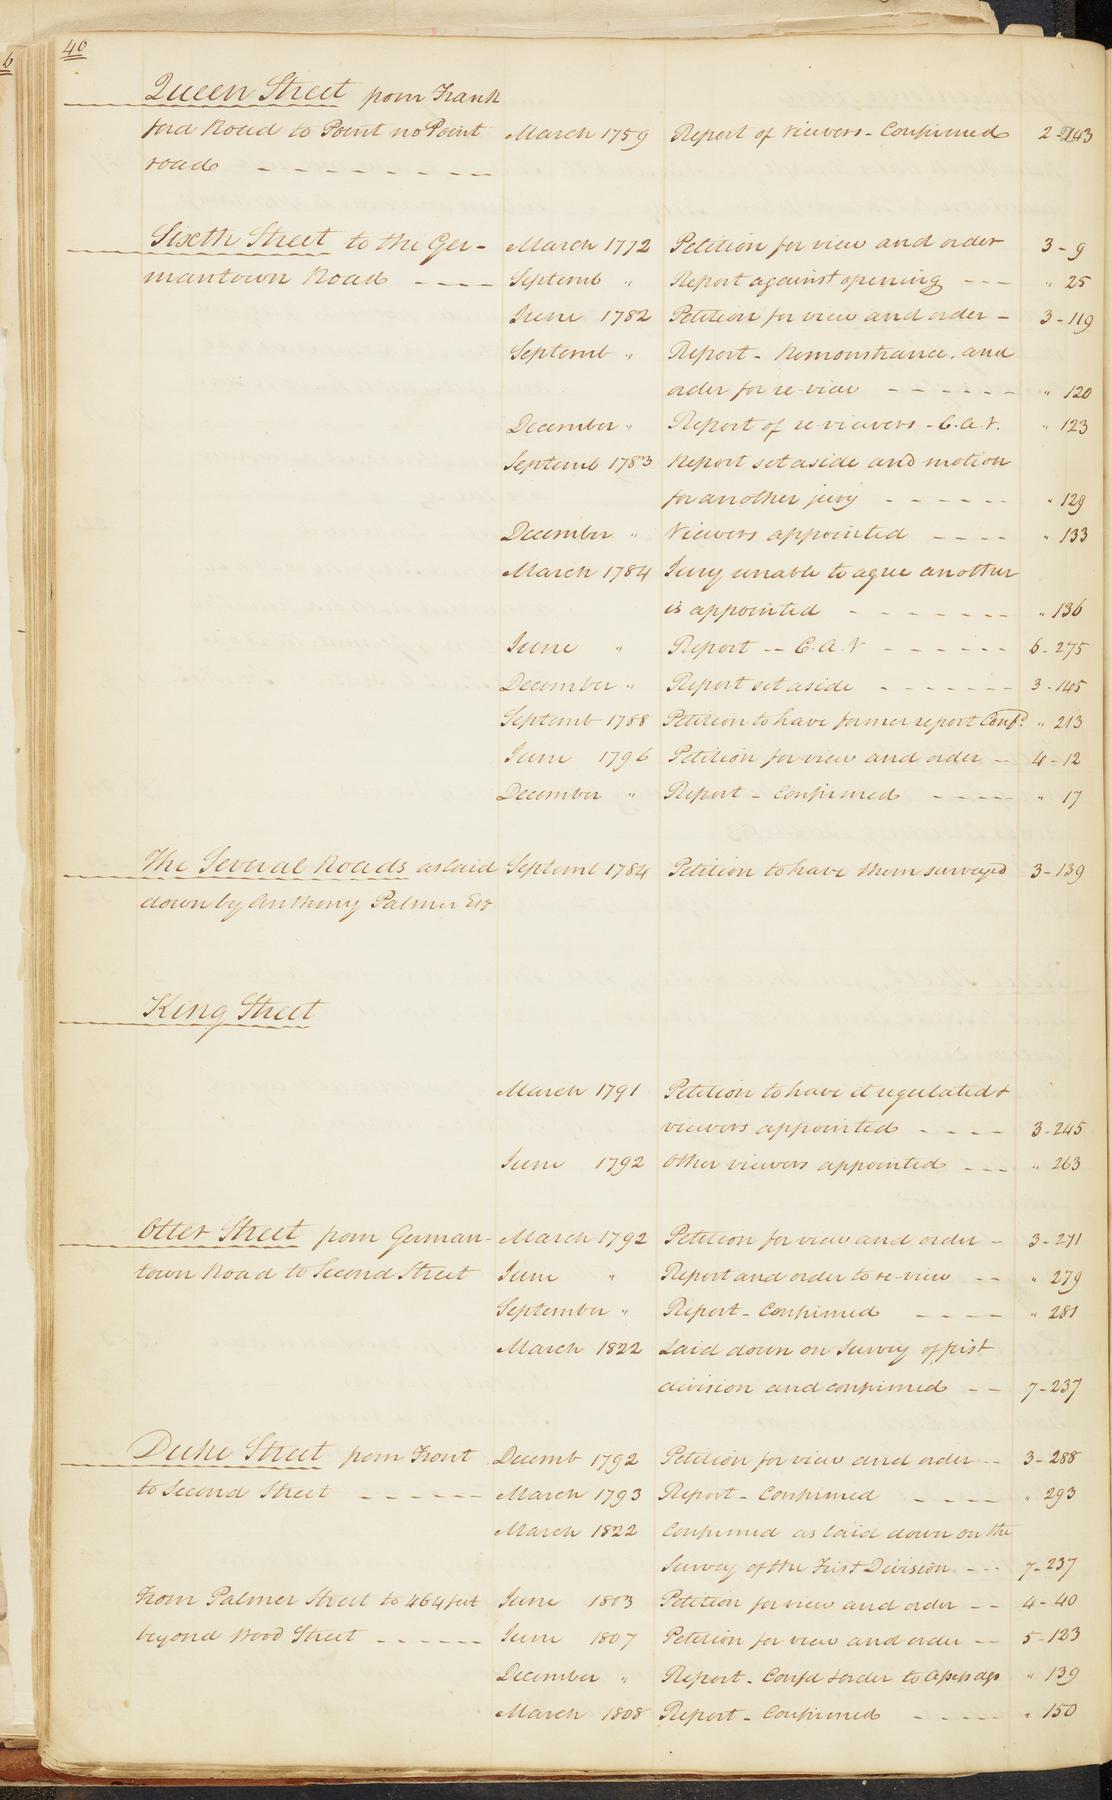 40
Queen Street from Frank
ford Road to Point no Point March 1759 Report of Viewers - Confirmed 2-143
road - - - - - - - - -
Sixth Street to the Ger- March 1772 Petition for view and order 3-9
mantown Road - - - - Septemb " Report against opening - - - " 25
June 1782 Petition for view and order - 3-119
Septemb " Report - Remonstrance. and
order for re-view - - - - - - " 120
December " Report of re-viewers - C.a.V. " 123
Septemb 1783 Report set aside and motion
for another jury - - - - - - " 129
December " Viewers appointed - - - - " 133
March 1784 Jury unable to agree another
is appointed - - - - - - - " 136
June " Report -- C.a.V - - - - - - 6-275
December " Report set aside - - - - - - - 3-145
Septemb 1788 Petition to have former report Confd. " 213
June 1796 Petition for view and order -- 4-12
December " Report - Confirmed - - - - - " 17
The Several Roads as laid Septemb 1784 Petition to have them surveyed 3-139
down by Anthony Palmer Esqr
King Street
March 1791 Petition to have it regulated &
viewers appointed - - - - 3-245
June 1792 Other viewers appointed - - - " 263
Otter Street from German- March 1792 Petition for view and order - 3-271
town Road to Second Street June " Report and order to re-view -- " 279
September " Report - Confirmed - - - - - " 281
March 1822 Laid down on Survey of first
division and confirmed -- 7-237
Duke Street from Front Decemb 1792 Petition for view and order -- 3-288
to Second Street - - - - - - March 1793 Report - Confirmed - - - - " 293
March 1822 Confirmed as laid down on the
Survey of the First Division - - - 7-237
From Palmer Street to 464 feet June 1803 Petition for view and order -- 4-40
beyond Wood Street - - - - - - June 1807 Petition for view and order -- 5-123
December " Report - Confd & order to assess dgs " 139
March 1808 Report - Confirmed - - - - - " 150